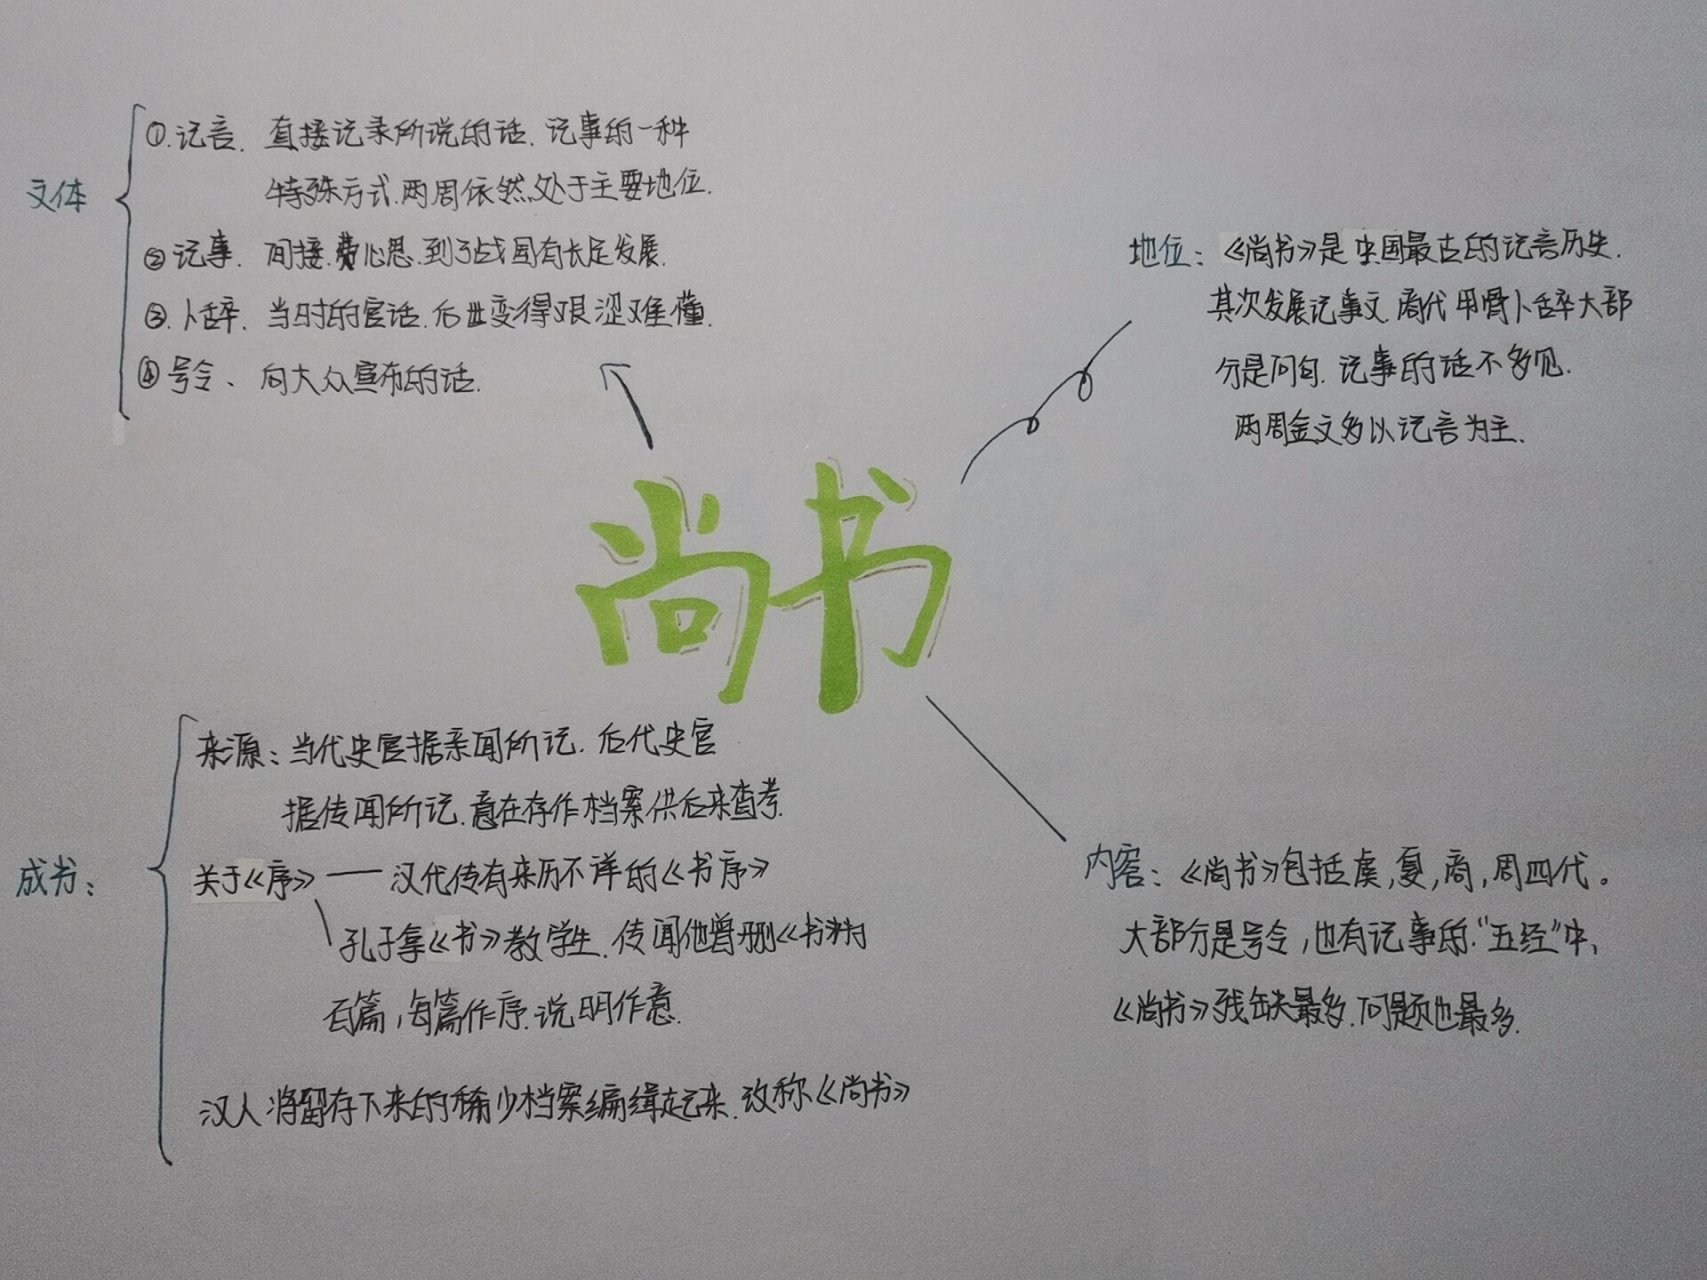 文体
①.记言. 直接记录所说的话. 记事的一种
特殊方式.两周依然处于主要地位.
②记事. 间接.费心思.到了战国有长足发展.
③.卜辞. 当时的官话.后世变得艰涩难懂.
④号令、向大众宣布的话.
地位：《尚书》是中国最古的记言历史.
其次发展记事文.商代甲骨卜辞大部
分是问句.记事的话不多见.
两周金文多以记言为主.
尚书
成书：
来源：当代史官据亲闻所记.后代史官
据传闻所记.意在存作档案供后来查考.
关于《序》——汉代传有来历不详的《书序》
孔子拿《书》教学生.传闻他曾删《书》为
百篇，每篇作序.说明作意.
汉人将留存下来的稀少档案编缉起来.改称《尚书》
内容：《尚书》包括虞,夏,商,周四代。
大部分是号令,也有记事的."五经"中、
《尚书》残缺最多.问题也最多.